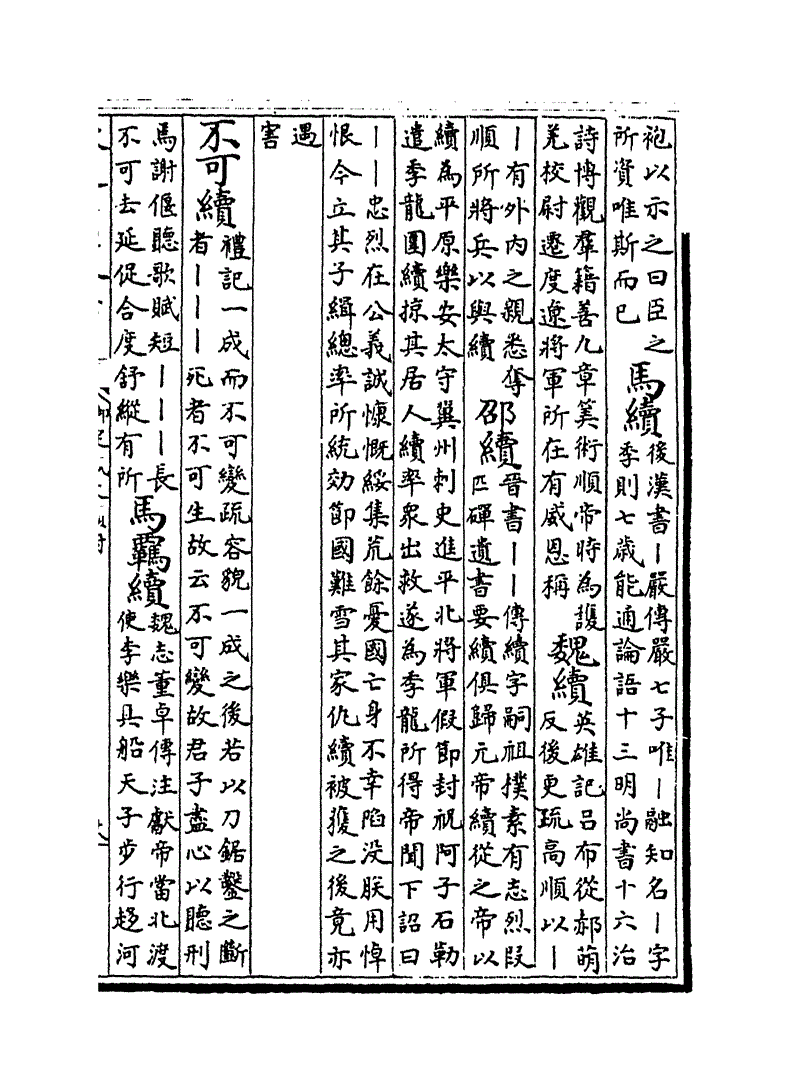 袍以示之曰臣之
所資唯斯而已
馬續
後漢書｜嚴傳嚴七子唯｜融知名｜字
季則七歲能通論語十三明尚書十六治
詩博觀羣籍善九章筭術順帝時為護
羌校尉遷度遼將軍所在有威恩稱
魏續
英雄記吕布從郝萌
反後更疏高順以｜
｜有外内之親悉奪
順所將兵以與續
邵續
晉書｜｜傳續字嗣祖撲素有志烈段
匹磾遺書要續俱歸元帝續從之帝以
續為平原樂安太守冀州刺史進平北將軍假節封祝阿子石勒
遣季龍圍續掠其居人續率衆出救遂為季龍所得帝聞下詔曰
｜｜忠烈在公義誠慷慨綏集荒餘憂國亡身不幸陷没朕用悼
恨今立其子緝總率所統効節國難雪其家仇續被獲之後竟亦
遇
害
不可續
禮記一成而不可變疏容貌一成之後若以刀鋸鑿之斷
者｜｜｜死者不可生故云不可變故君子盡心以聽刑
馬謝偃聽歌賦短｜｜｜長
不可去延促合度舒縱有所
馬羈續
魏志董卓傳注獻帝當北渡
使李樂具船天子步行趍河